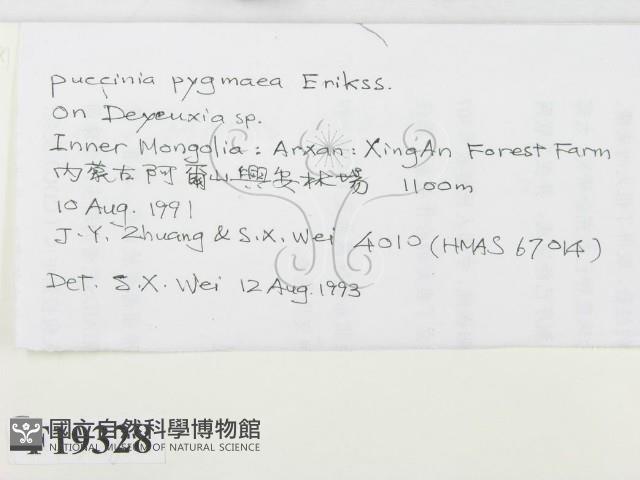 puccinia pygmaea Erikss.
on Deyeuxia sp.
Inner Mongolia : Arxan : XingAn Forest Farm
內蒙古阿爾山興安林場 1100m
10 Aug. 1991
J.Y. Zhuang & S.X. Wei 4010 (HMAS 67014)
Det. S.X. Wei 12 Aug. 1993
國立自然科學博物館
NATIONAL MUSEUM OF NATURAL SCIENCE
F19328